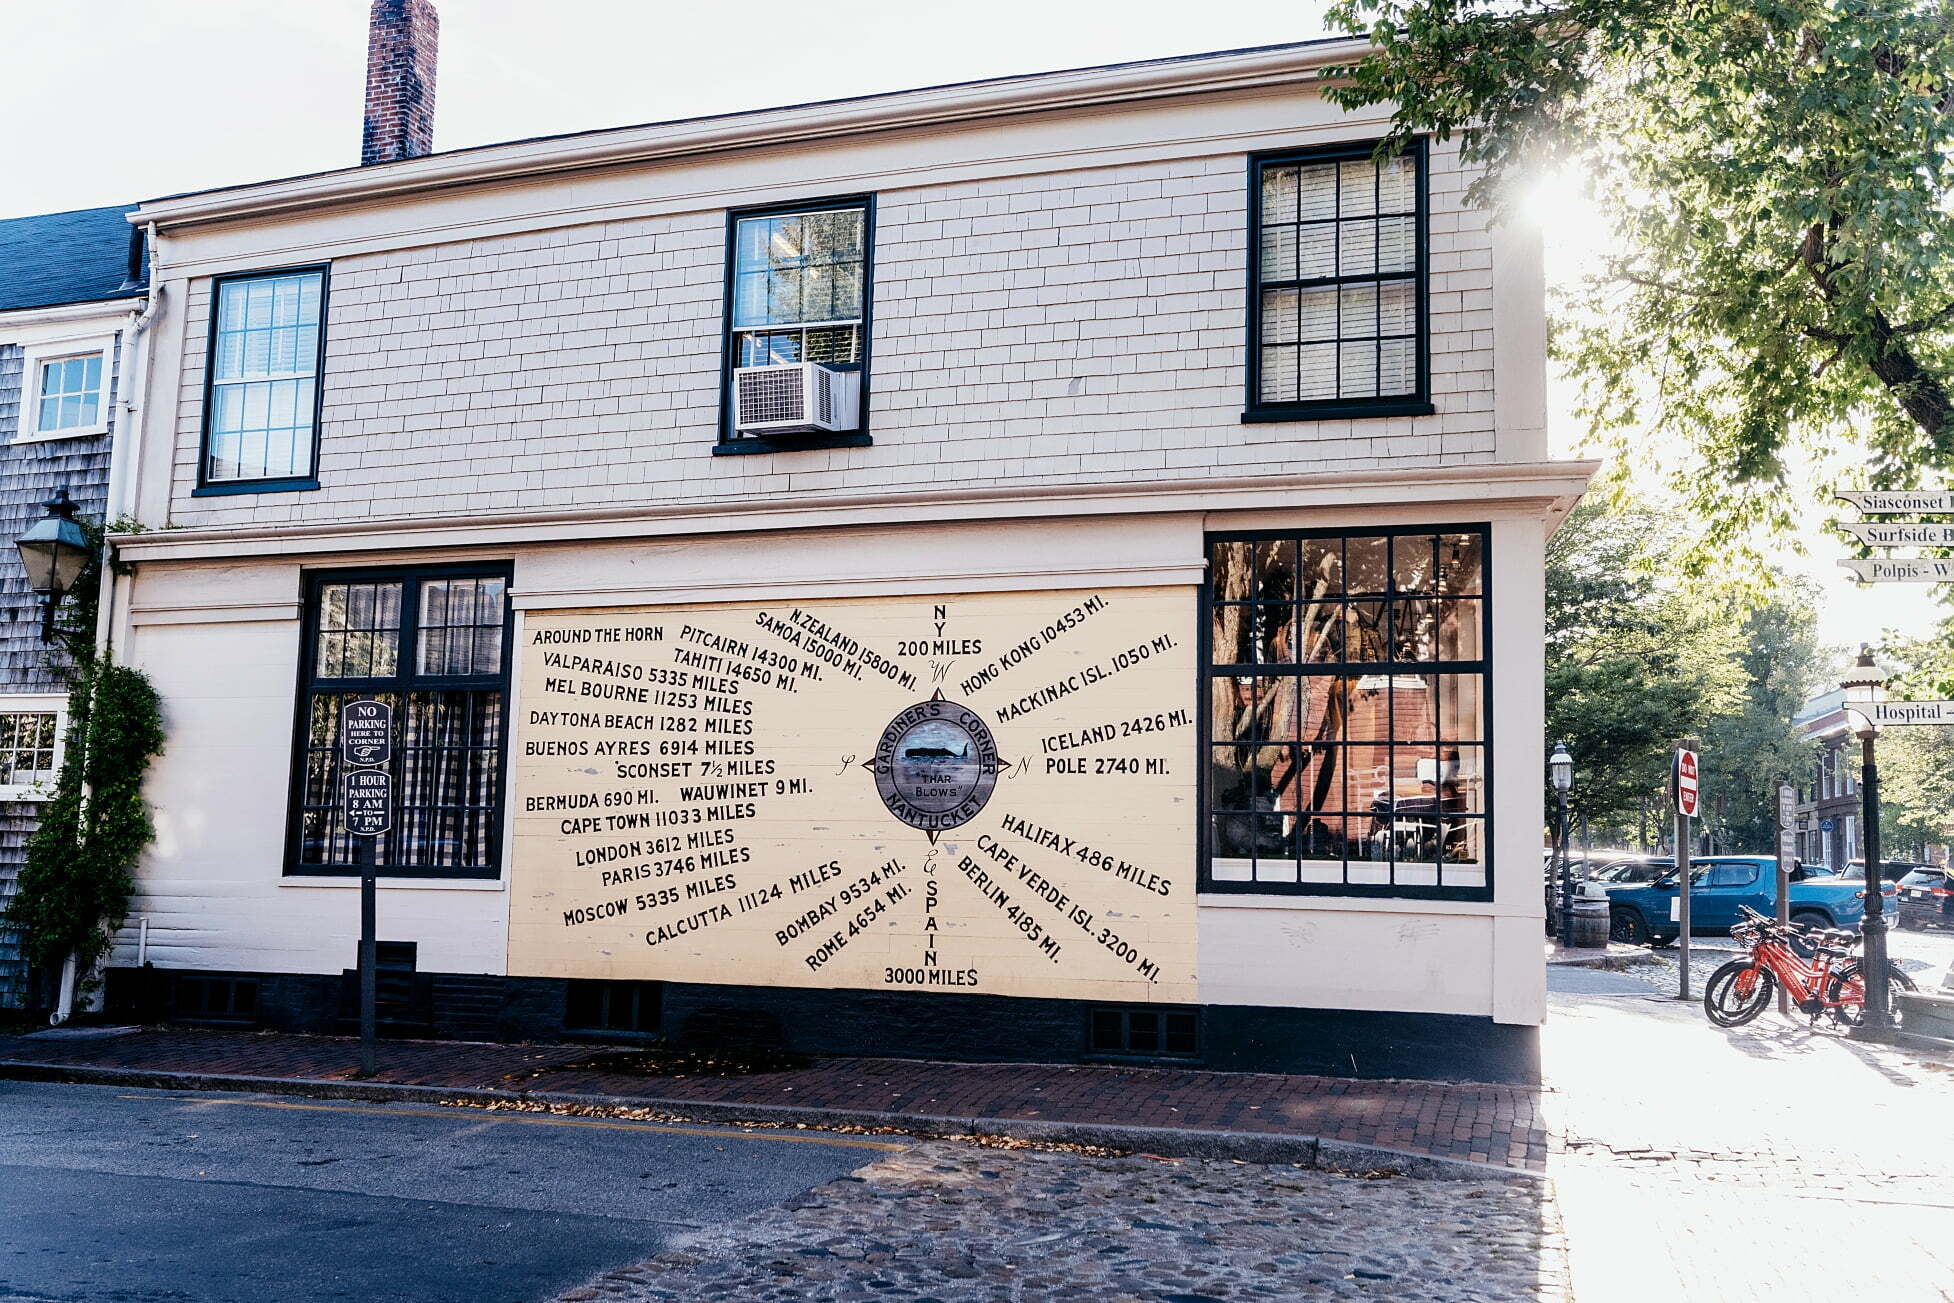 AROUND THE HORN
PITCAIRN 14300 MI.
TAHITI 14650 MI.
SAMOA 15000 MI.
N. ZEALAND 15800 MI.
VALPARAISO 5335 MILES
MEL BOURNE 11253 MILES
DAYTONA BEACH 1282 MILES
BUENOS AYRES 6914 MILES
'SCONSET 7½ MILES
BERMUDA 690 MI. WAUWINET 9 MI.
CAPE TOWN 11033 MILES
LONDON 3612 MILES
PARIS 3746 MILES
MOSCOW 5335 MILES
CALCUTTA 11124 MILES
BOMBAY 9534 MI.
ROME 4654 MI.
NY
200 MILES
W
S
N
E
GARDINER'S CORNER
"THAR
BLOWS"
NANTUCKET
SPAIN
3000 MILES
HONG KONG 10453 MI.
MACKINAC ISL. 1050 MI.
ICELAND 2426 MI.
POLE 2740 MI.
HALIFAX 486 MILES
CAPE VERDE ISL. 3200 MI.
BERLIN 4185 MI.
NO
PARKING
HERE TO
CORNER
N.P.D.
1 HOUR
PARKING
8 AM
TO
7 PM
N.P.D.
Siasconset
Surfside B
Polpis - W
Hospital -
DO NOT
ENTER